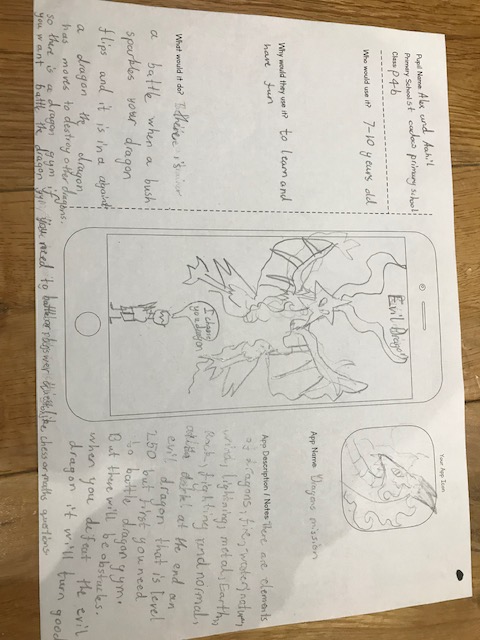 Pupil Name Alex and Aahil
Primary School st cadocs primary school
Class P4-b
Who would use it? 7-10 years old
Why would they use it? to learn and
have fun
What would it do?
a battle when a bush
sparkles your dragon
flips and it is in a
a dragon the dragon
has moves to destroy other dragons.
so there is a dragon gym if
you want battle the dragon gym you need to answer like, chess or maths
Evil Dragon
I choose
you dragon
Your App Icon
App Name Dragons mission
App Description / Notes there are elements
of dragons, fire, water, nature,
wind, lightning, metal, Earth,
fighting and normal,
at the end an
evil dragon that is level
250 but first you need
to battle dragon gym.
But there will be obstacles.
when you defeat the evil
dragon it will turn good